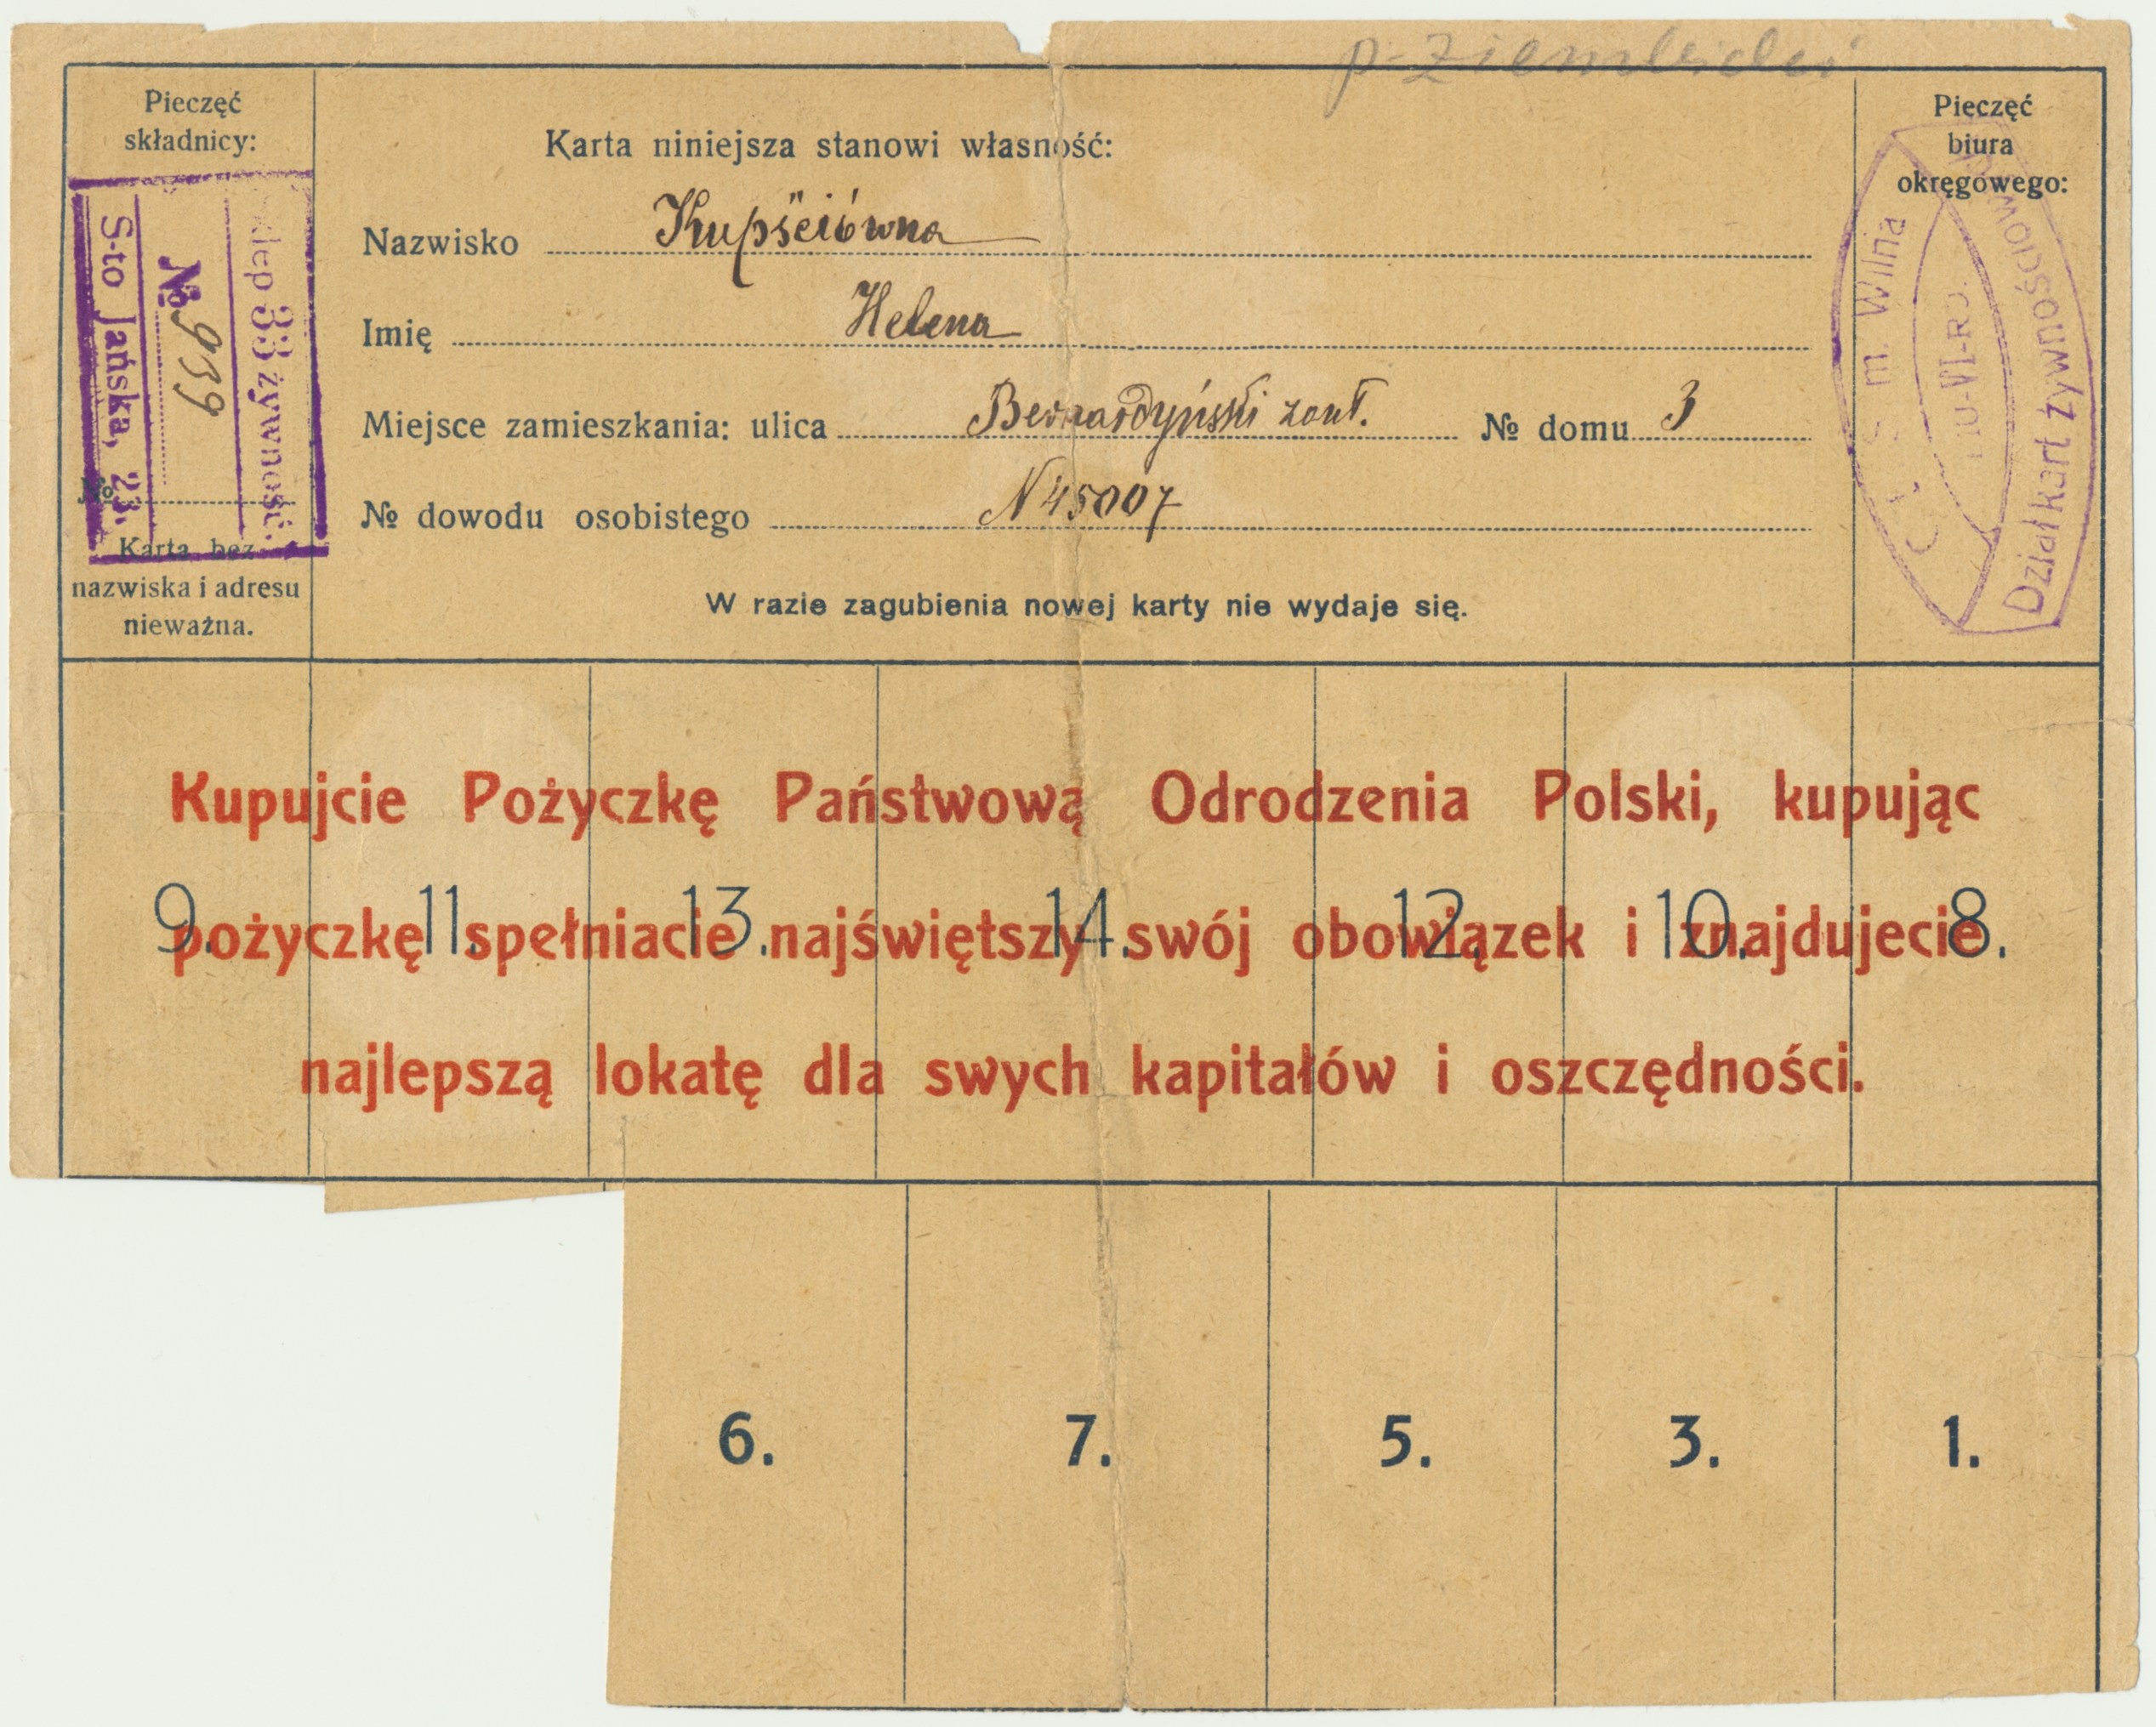 Pieczęć
składnicy:
Sklep 33 żywnośc.
№ 9939
S-to Jańska, 23.
№
Karta bez
nazwiska i adresu
nieważna.
Karta niniejsza stanowi własność:
Nazwisko Kupściówna
Imię Helena
Miejsce zamieszkania: ulica Bernardyński zauł. № domu 3
№ dowodu osobistego N 45007
W razie zagubienia nowej karty nie wydaje się.
Pieczęć
biura
okręgowego:
m. Wilna
Dział kart żywnościowych
Kupujcie Pożyczkę Państwową Odrodzenia Polski, kupując
pożyczkę spełniacie najświętszy swój obowiązek i znajdujecie
najlepszą lokatę dla swych kapitałów i oszczędności.
9. 11. 13. 14. 12. 10. 8.
6. 7. 5. 3. 1.